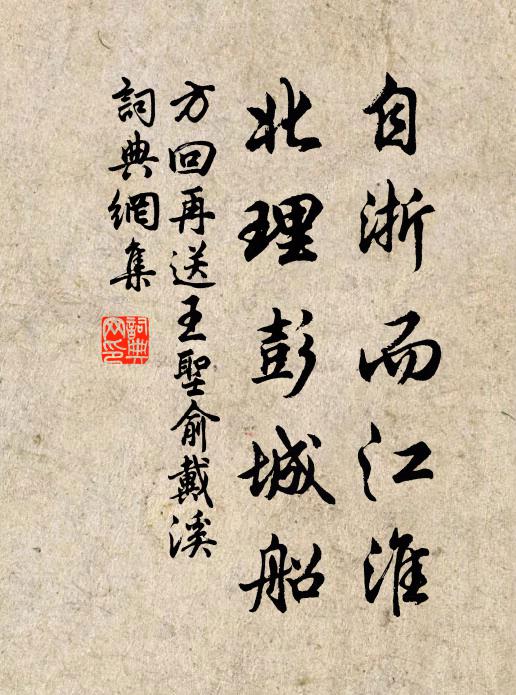 自浙而江淮
北理彭城船
方回再送王聖俞戴溪
詞典網集
詞典
网印